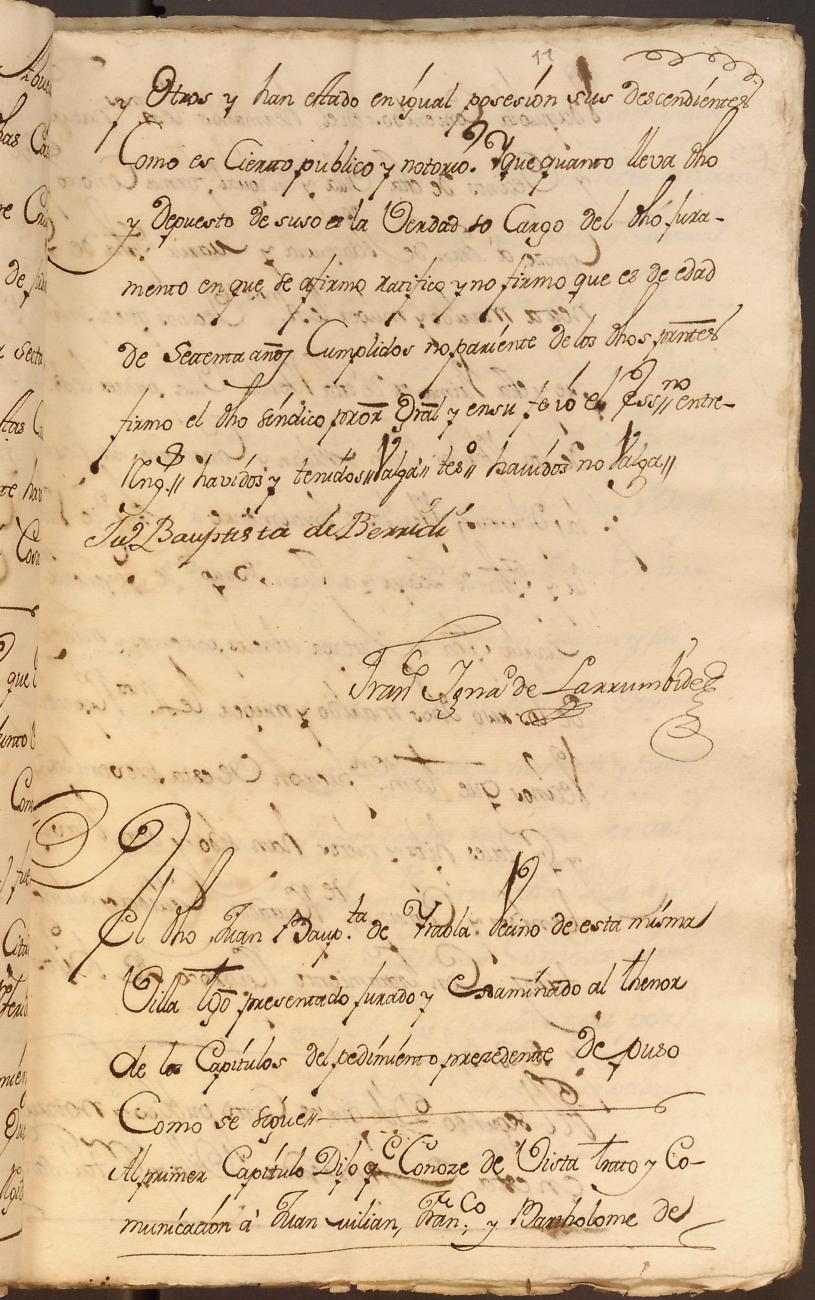 11
y Otros y han estado en igual posesión sus descendientes
Como es Cierto publico y notorio. Y que quanto lleva dho
y depuesto de suso es la Verdad so Cargo del dho jura-
mento en que se afirmo ratifico y no firmo que es de edad
de Setenta años Cumplidos no pariente de los dhos partes
firmo el dho síndico pror Gral y en su fe yo el Essno entre-
Rngs havidos y tenidos Valga tes havidos no Valga
Ju Bauptista de Berridi
Franco Ignao de Larrumbide
El dho Juan Baupta de Yraola Vecino de esta misma
Villa tgo presentado jurado y Examinado al thenor
de los Capítulos del pedimiento prezedente depuso
Como se sigue
Al primer Capítulo Dijo qe Conoze de Vista trato y Co-
municación a Juan Julian, Franco y Bartholome de